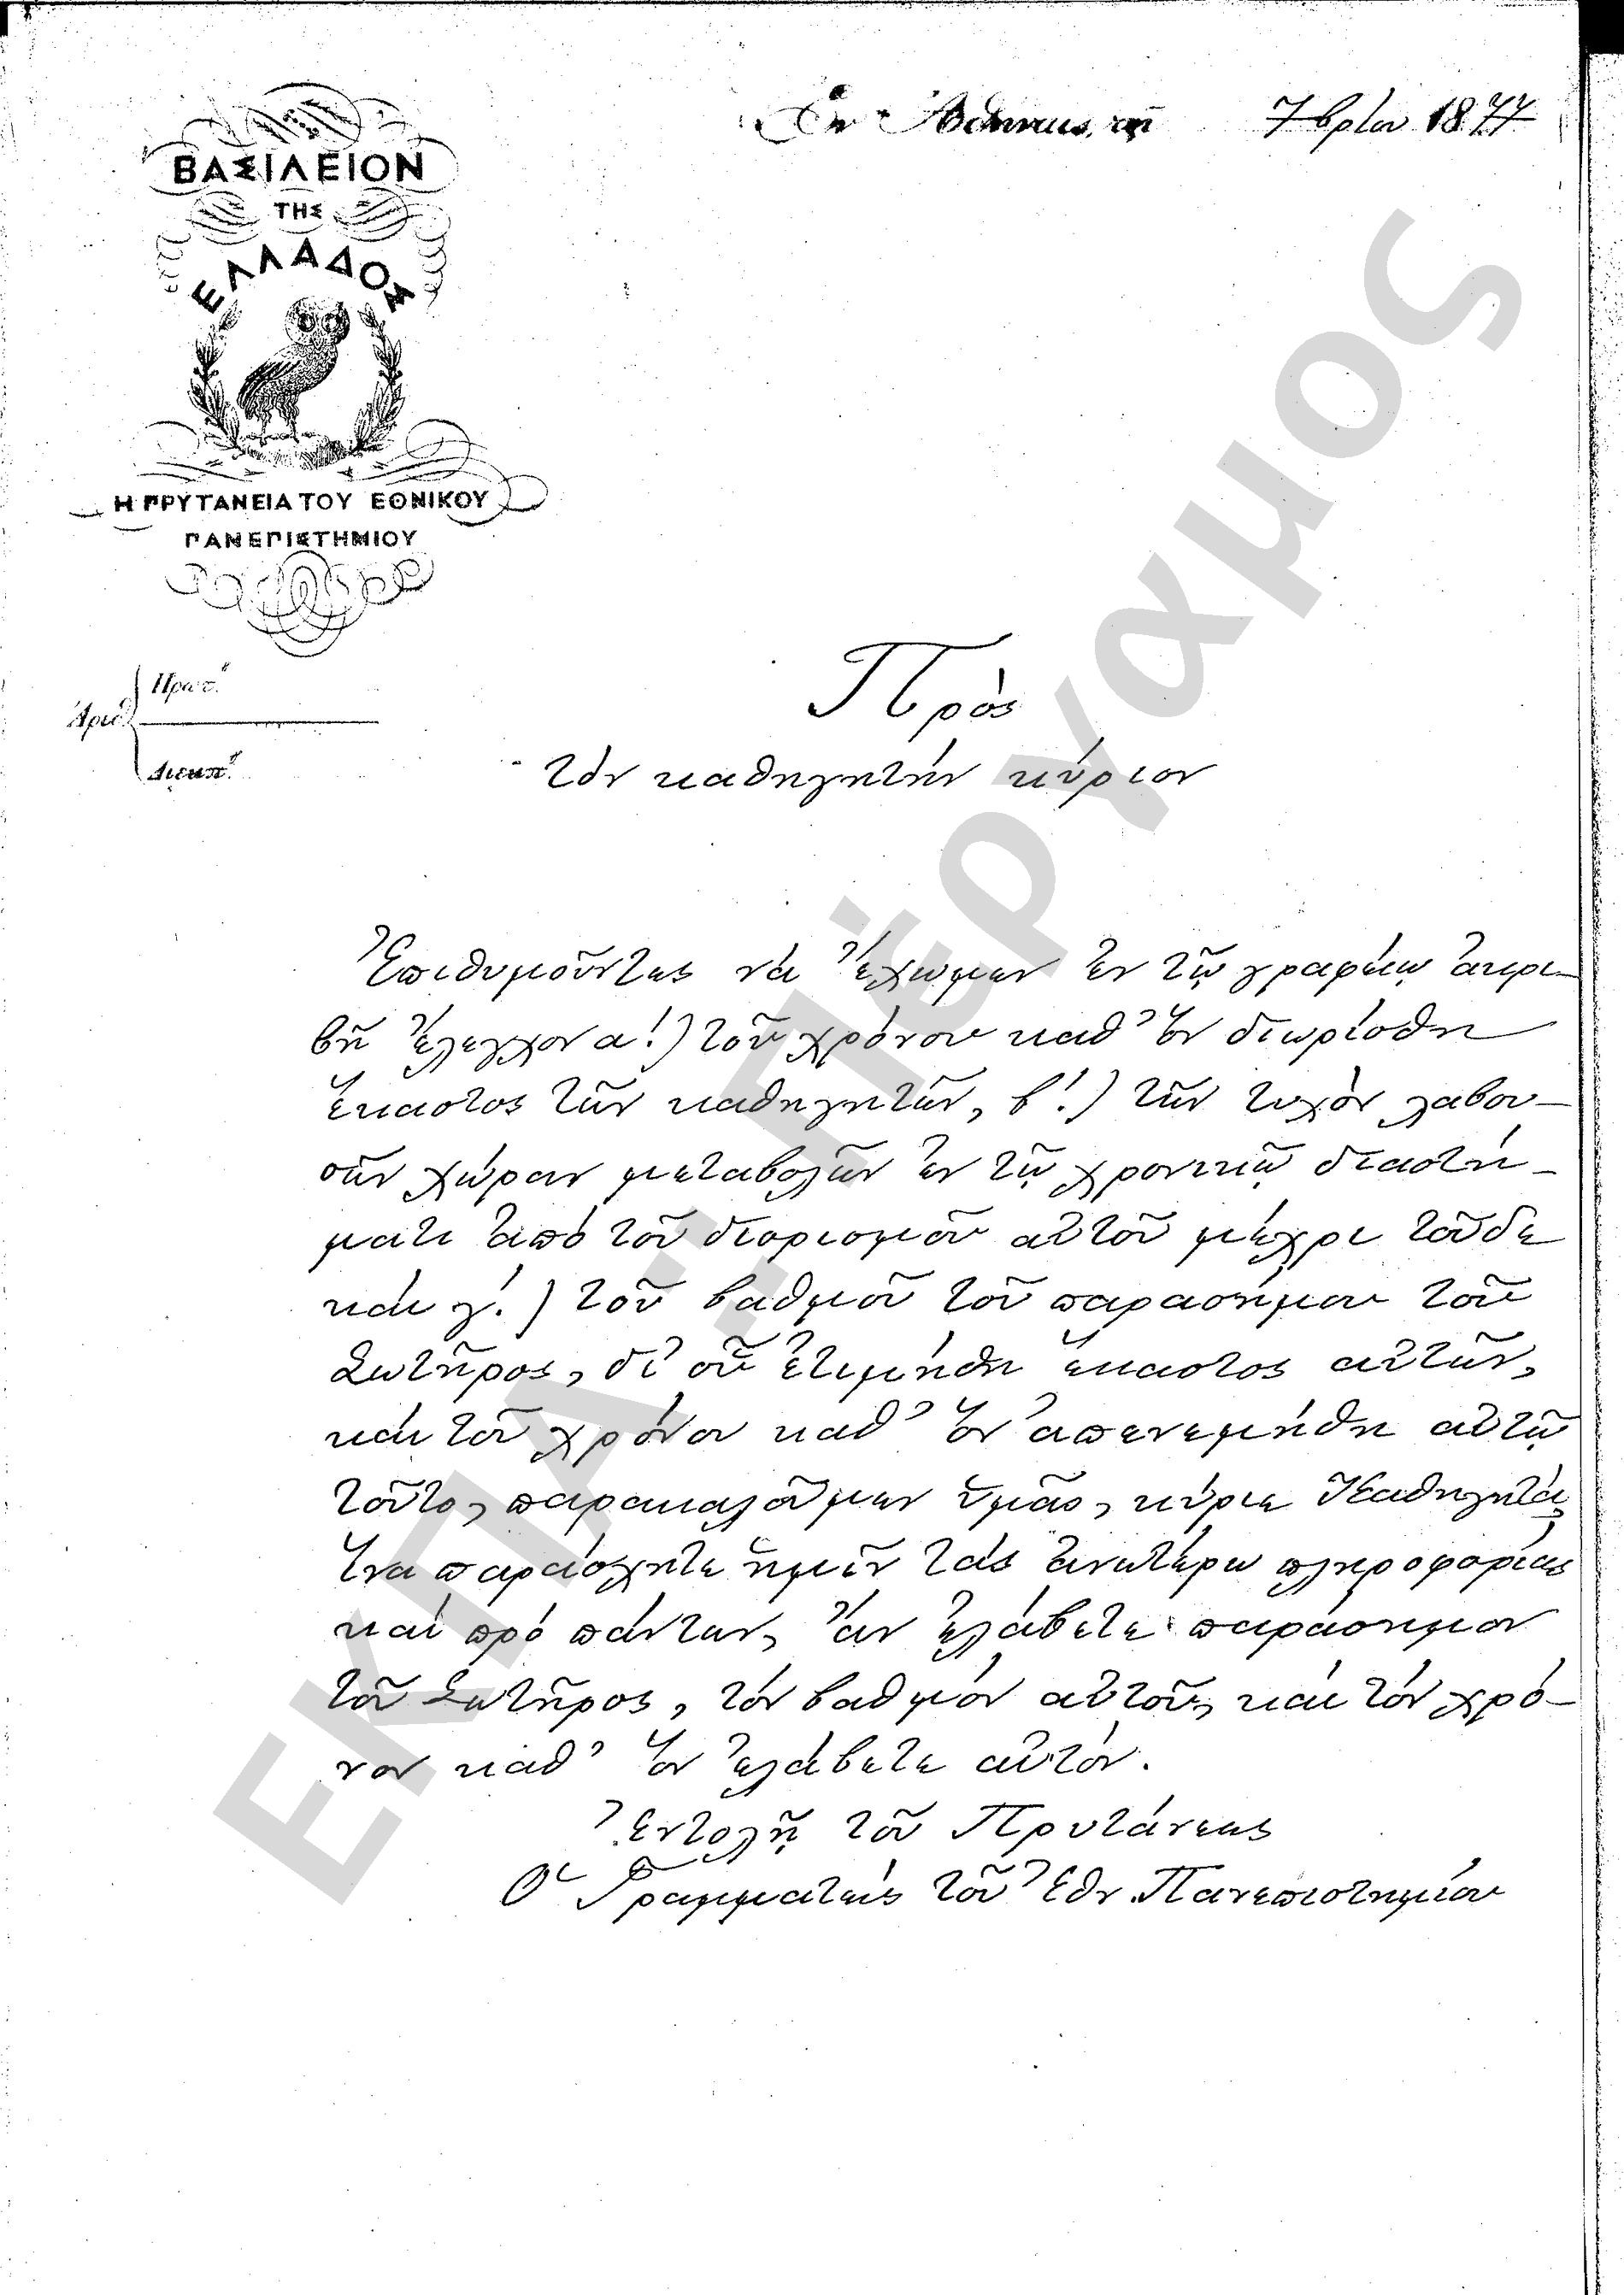 Ἐν Ἀθήναις, τῇ 7βρίου 1877
ΒΑΣΙΛΕΙΟΝ
ΤΗΣ
ΕΛΛΑΔΟΣ
Η ΠΡΥΤΑΝΕΙΑ ΤΟΥ ΕΘΝΙΚΟΥ
ΠΑΝΕΠΙΣΤΗΜΙΟΥ
Πρωτ.
Ἀριθ.
Διεκπ.
Πρὸς
τὸν καθηγητὴν κύριον
Ἐπιθυμοῦντες νὰ ἔχωμεν ἐν τῷ γραφείῳ ἀκρι-
βῆ ἔλεγχον α΄.) τοῦ χρόνου καθ' ὃν διωρίσθη
ἕκαστος τῶν καθηγητῶν, β΄.) τῶν τυχὸν λαβου-
σῶν χώραν μεταβολῶν ἐν τῷ χρονικῷ διαστή-
ματι ἀπὸ τοῦ διορισμοῦ αὐτοῦ μέχρι τοῦδε
καὶ γ΄.) τοῦ βαθμοῦ τοῦ παρασήμου τοῦ
Σωτῆρος, δι' οὗ ἐτιμήθη ἕκαστος αὐτῶν,
καὶ τοῦ χρόνου καθ' ὃν ἀπενεμήθη αὐτῷ
τοῦτο, παρακαλοῦμεν ὑμᾶς, κύριε Καθηγητά,
ἵνα παράσχητε ἡμῖν τὰς ἀνωτέρω πληροφορίας
καὶ πρὸ πάντων, ἂν ἐλάβετε παράσημον
τοῦ Σωτῆρος, τὸν βαθμὸν αὐτοῦ, καὶ τὸν χρό-
νον καθ' ὃν ἐλάβετε αὐτόν.
Ἐντολῇ τοῦ Πρυτάνεως
Ὁ Γραμματεὺς τοῦ Ἐθν. Πανεπιστημίου
ΕΚΠΑ - Πέργαμος